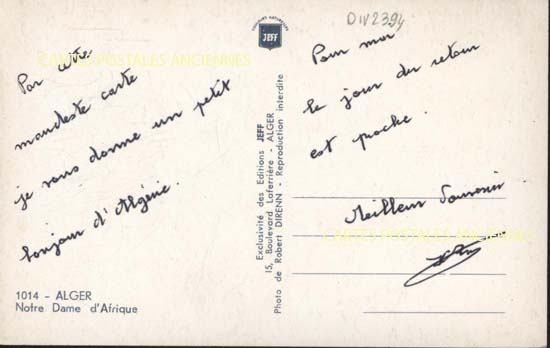 DIV2394
COULEURS NATURELLES
JEFF
CARTES POSTALES ANCIENNES
Par cette
maudeste carte
je vous donne un petit
bonjour d'Algérie.
Pour moi
le jour du retour
est proche.
Meilleur Souvenir
CARTES POSTALES ANCIENNES
Exclusivité des Editions JEFF
15, Boulevard Laferrière - ALGER
Photo de Robert DIRENN - Reproduction interdite
1014 - ALGER
Notre Dame d'Afrique